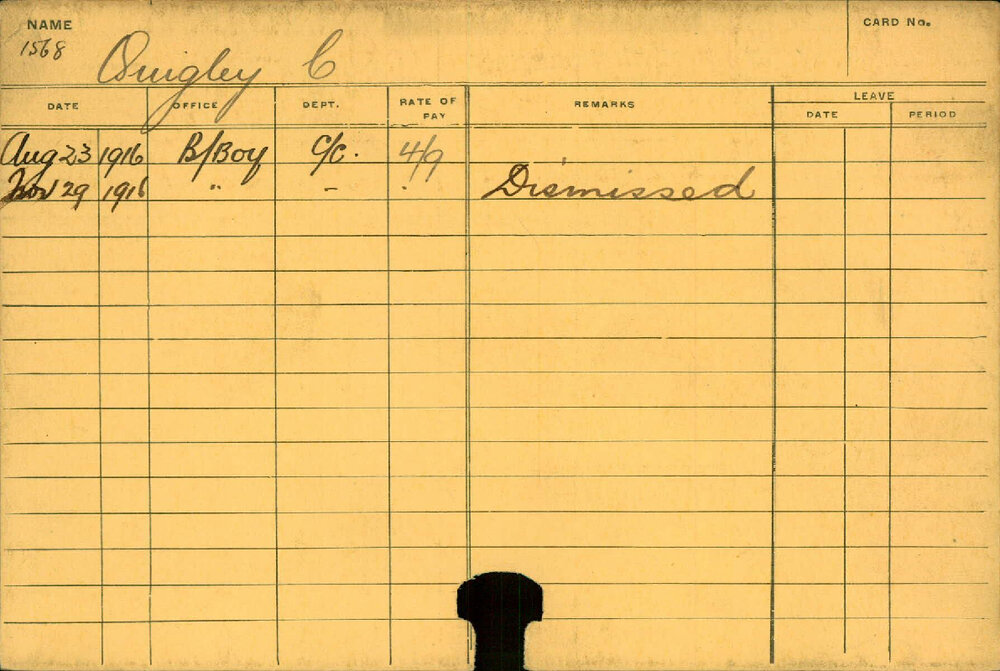 NAME
CARD No.
1568
Quigley C
DATE OFFICE DEPT. RATE OF PAY REMARKS LEAVE
DATE PERIOD
Aug 23 1916 B/Boy C/C. 4/9
Nov 29 1916 " - " Dismissed